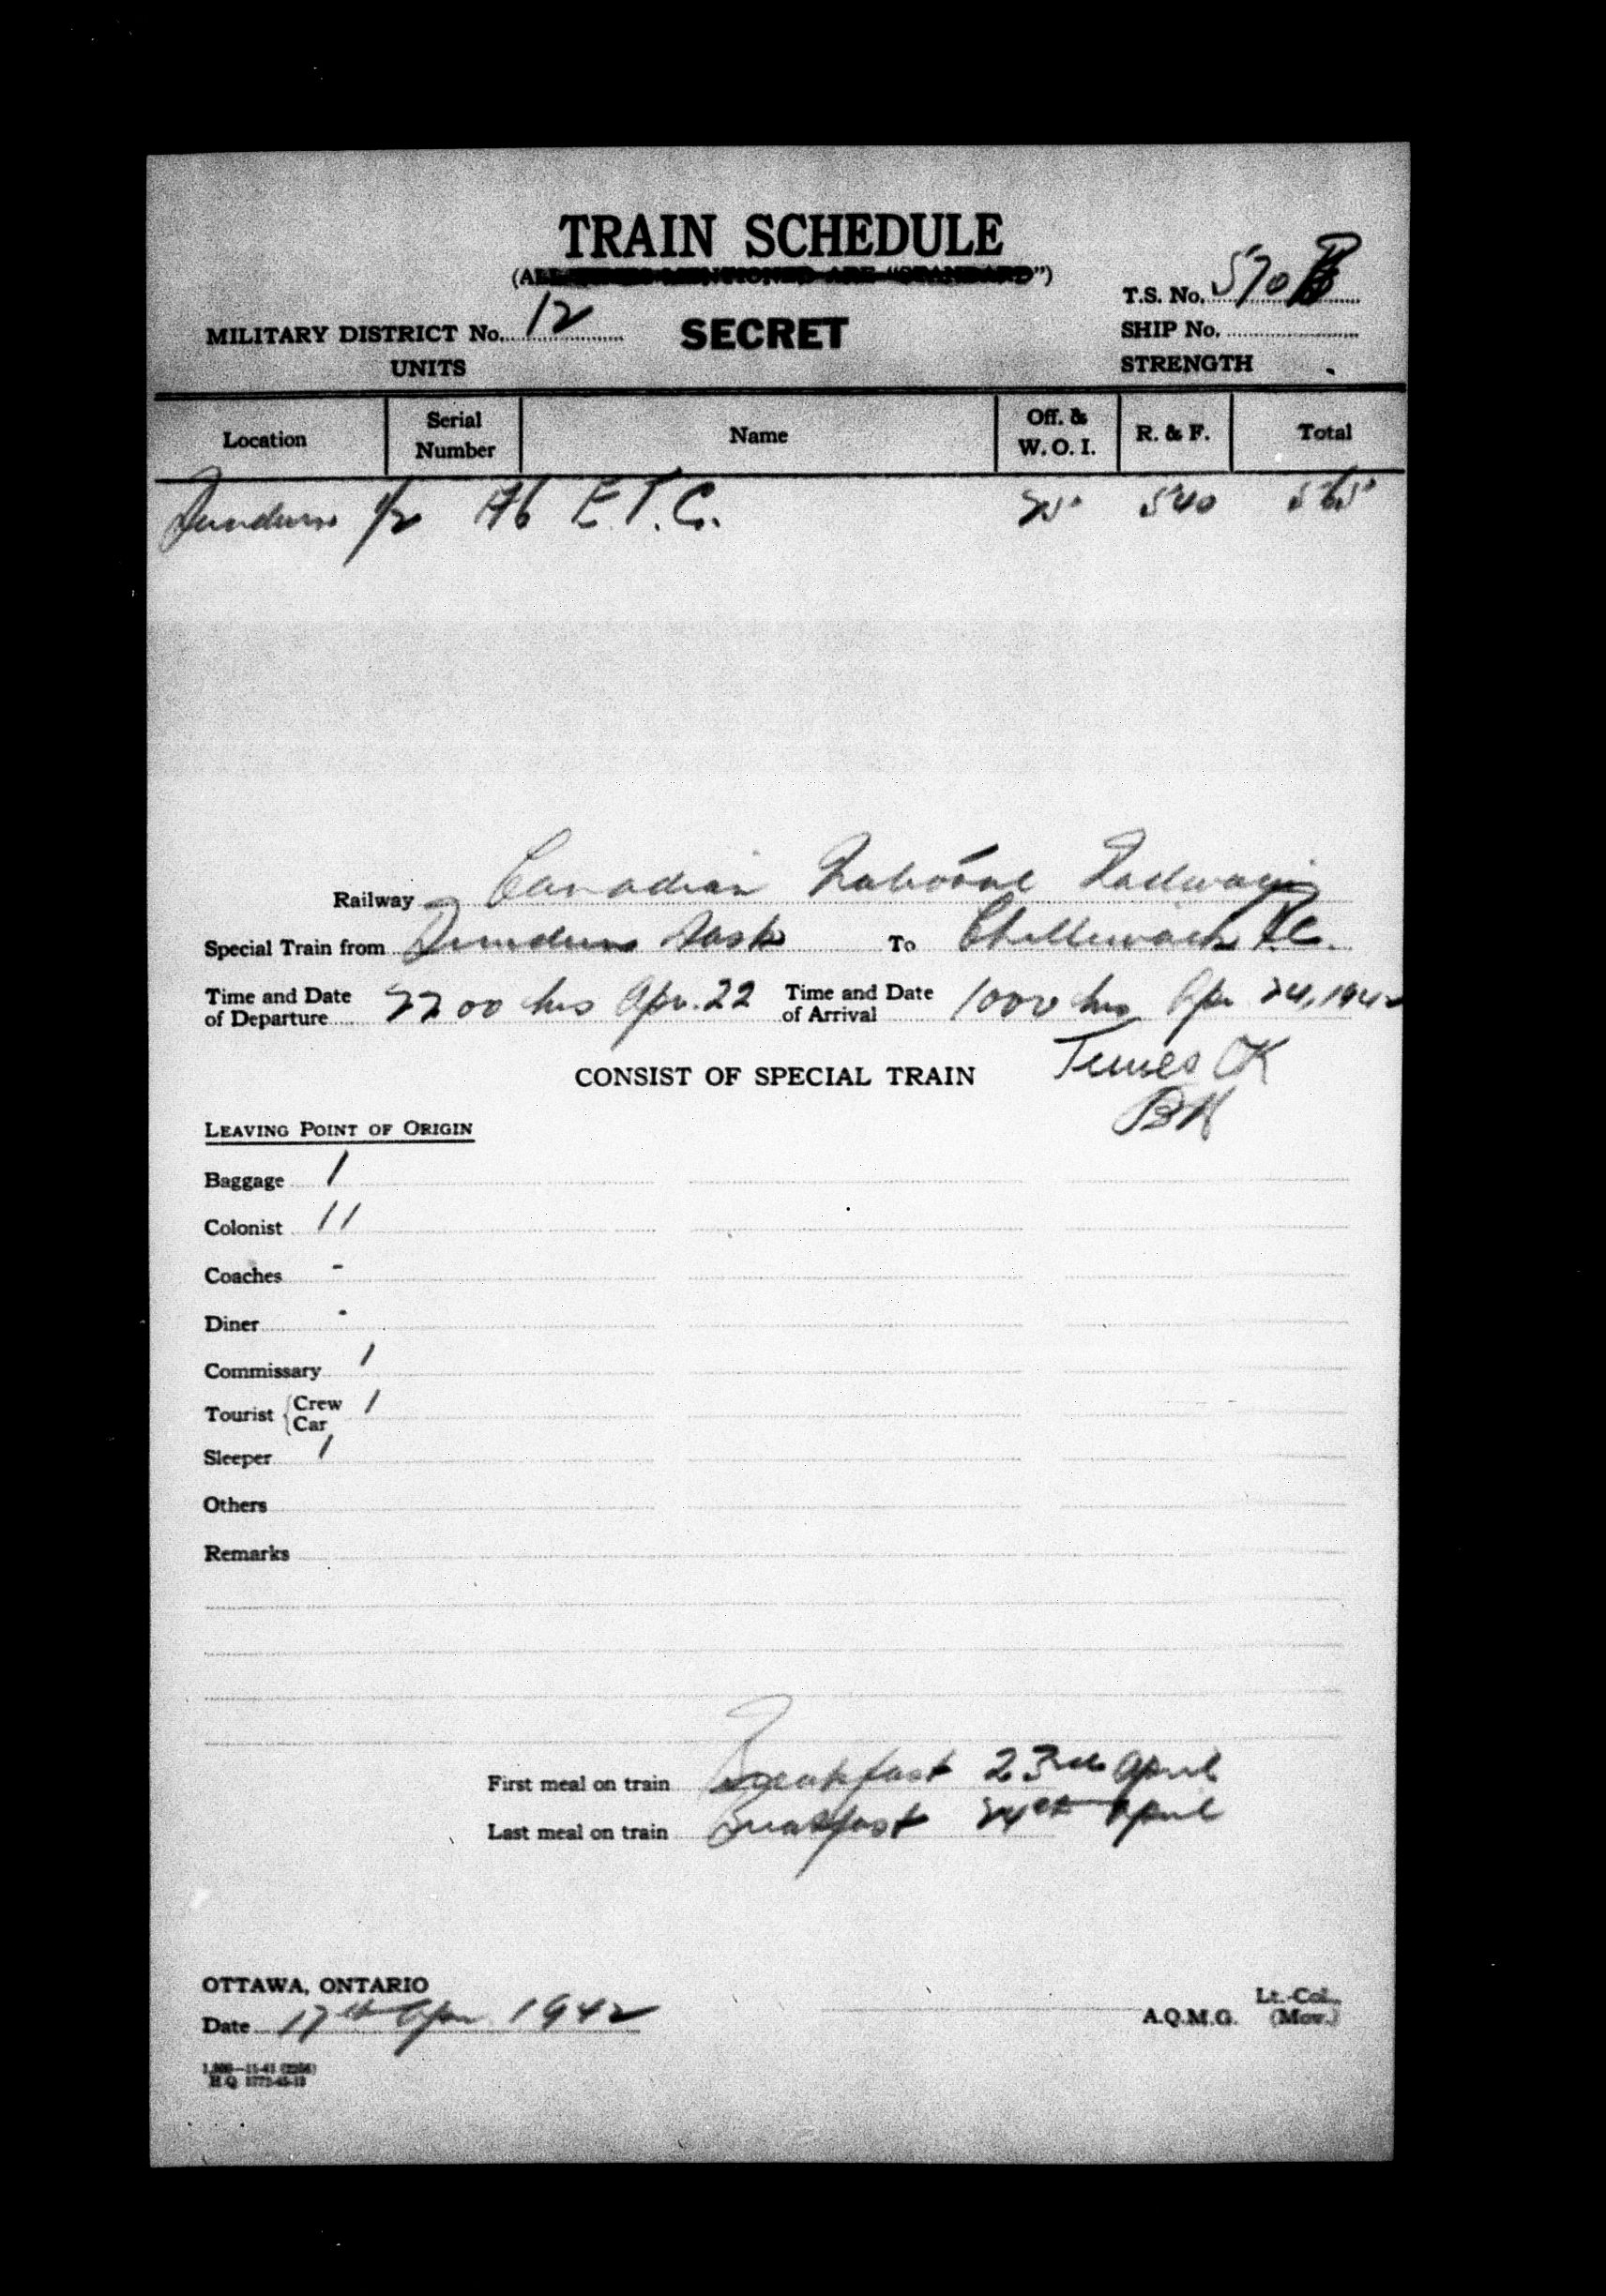 TRAIN SCHEDULE
(ALL TIMES MENTIONED ARE "STANDARD")
T.S. No. 570 B
MILITARY DISTRICT No. 12 SECRET SHIP No.
UNITS STRENGTH
Location Serial Number Name Off. & W.O.I. R. & F. Total
Dundurn 1/2 A6 E.T.C. 25 540 565
Railway Canadian National Railways
Special Train from Dundurn Sask To Chilliwack B.C.
Time and Date of Departure 2200 hrs Apr. 22 Time and Date of Arrival 1000 hrs Apr 24, 1942
CONSIST OF SPECIAL TRAIN Times OK
BH
LEAVING POINT OF ORIGIN
Baggage 1
Colonist 11
Coaches -
Diner -
Commissary 1
Tourist { Crew Car 1
Sleeper 1
Others
Remarks
First meal on train Breakfast 23rd April
Last meal on train Breakfast 24th April
OTTAWA, ONTARIO
Lt.-Col.
Date 17th Apr 1942 A.Q.M.G. (Mov.)
H.Q.